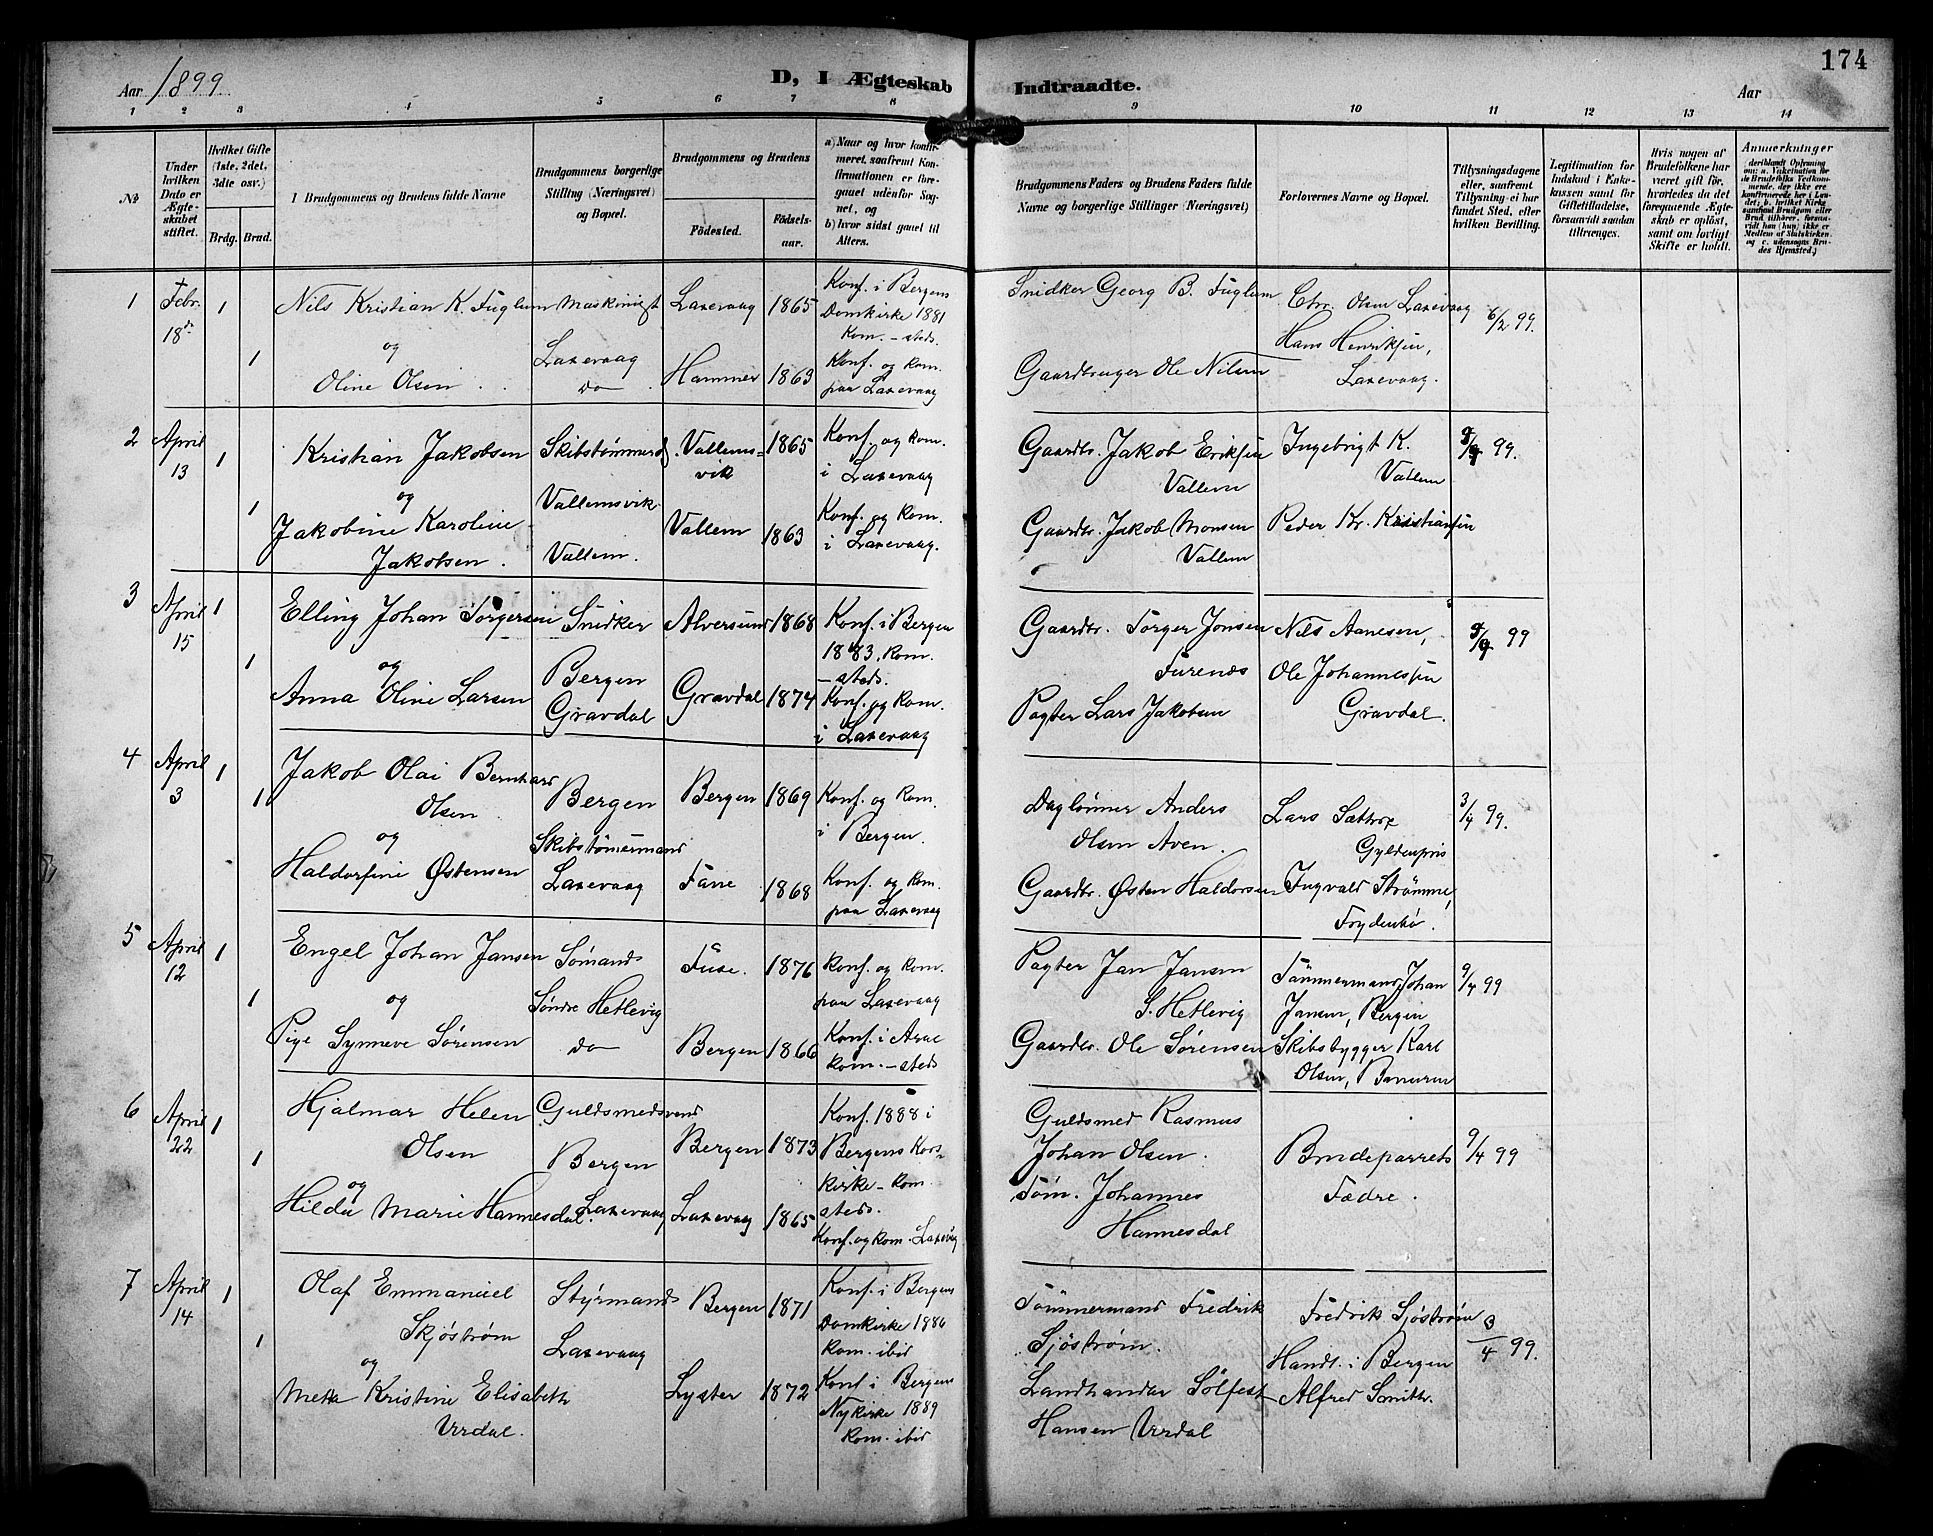 174
Aar 1899.
D, I Ægteskab Indtraadte.
Aar
1 2 3 4 5 6 7 8 9 10 11 12 13 14
№
Under hvilken Dato er Ægteskabet stiftet.
Hvilket Gifte (1ste, 2det, 3die osv.)
Brdg. Brud.
I Brudgommens og Brudens fulde Navne
Brudgommens borgerlige Stilling (Næringsvei) og Bopæl.
Brudgommens og Brudens
Födested. Födsels-aar.
a) Naar og hvor konfirmeret, saafremt Konfirmationen er foregaaet udenfor Sognet, og
b) hvor sidst gaaet til Alters.
Brudgommens Faders og Brudens Faders fulde Navne og borgerlige Stillinger (Næringsvei)
Forlovernes Navne og Bopæl.
Tillysningsdagene eller, saafremt Tillysning ei har fundet Sted, efter hvilken Bevilling.
Legitimation for Indskud i Enkekassen samt for Giftetilladelse, forsaavidt saadan tiltrænges.
Hvis nogen af Brudefolkene har været gift för, hvorledes da det foregaaende Ægteskab er oplöst, samt om lovligt Skifte er holdt.
Anmærkninger
(deriblandt Oplysning om: a. Vakcination for de Brudefolks Vedkommende, der ikke ere konfirmerede her i Landet; b. hvilket Kirkesamfund Brudgom eller Brud tilhörer, forsaavidt han (hun) ikke er Medlem af Statskirken, og c. udensogns Brudes Hjemsted.)
1 Febr. 18de 1 Nils Kristian K. Fuglum Maskinist Laxevaag 1865 Konf. i Bergens Domkirke 1881 kom. – steds. Snidker Georg B. Fuglum Chr. Olsen Laxevaag 6/2 99.
og Laxevaag Hans Henriksen,
1 Oline Olsen. do Hammer 1863 Konf. og kom. paa Laxevaag Gaardbruger Ole Nilsen Laxevaag.
2 April 13 1 Kristian Jakobsen Skibstømmerm. Vallemsvik 1865 Konf. og kom. i Laxevaag Gaardbr. Jakob Eriksen Vallem Ingebrigt K. Vallem 99.
og Vallemsvik
1 Jakobine Karoline Jakobsen. Vallem. Vallem 1863 Konf. og kom. i Laxevaag. Gaardbr. Jakob Monsen Vallem Peder Kr. Kristiansen
3 April 15 1 Elling Johan Torgersen Snidker Alversund 1868 Konf. i Bergen 1883, kom. – steds. Gaardbr. Torger Jonsen Furenes Nils Aanesen, 99
og Bergen Ole Johannessen
1 Anna Oline Larsen Gravdal Gravdal 1874 Konf. og kom. i Laxevaag Pagter Lars Jakobsen Gravdal.
4 April 3 1 Jakob Olai Bernhard Olsen Bergen Bergen 1869 Konf. og kom. i Bergen. Daglønner Anders Olsen Aven. Lars Sættre Gyldenpris 3/4 99.
og Skibstømermand
1 Haldorfine Østensen Laxevaag Fane 1868 Konf. og kom. paa Laxevaag Gaardbr. Østen Haldorsen Ingvald Strømme, Frydenbø.
5 April 12 1 Engel Johan Jansen Sømand Fuse. 1876 Konf. og kom. paa Laxevaag Pagter Jan Jansen S. Hetlevig Tømmermand Johan Jansen, Bergen 9/4 99
og Søndre Hetlevig
1 Pige Synneve Sørensen do Bergen 1866 Konf. i Arne kom. – steds Gaardbr. Ole Sørensen Skibsbygger Karl Olsen,
6 April 22 1 Hjalmar Helen Olsen Guldsmedsvend Bergen Bergen 1873 Konf. 1888 i Bergens Korskirke – kom. steds. Guldsmed Rasmus Johan Olsen. Brudeparrets Fædre. 9/4 99
og
1 Hilda Marie Hannesdal. Laxevaag Laxevaag 1865 Konf. og kom. Laxevåg Tøm. Johannes Hannesdal
7 April 14 1 Olaf Emmanuel Skjøstrøm Styrmand Laxevaag Bergen 1871 Konf. i Bergens Domkirke 1886 kom. ibid Tømmermand Fredrik Sjøstrøm. Fredrik Sjøstrøm 3/4 99.
og Handl. i Bergen
1 Metta Kristine Elisabeth Urdal. Lyster 1872 Konf. i Bergens Nykirke 1889 kom. ibid Landhandler Sølfest Hansen Urdal Alfred Smith.